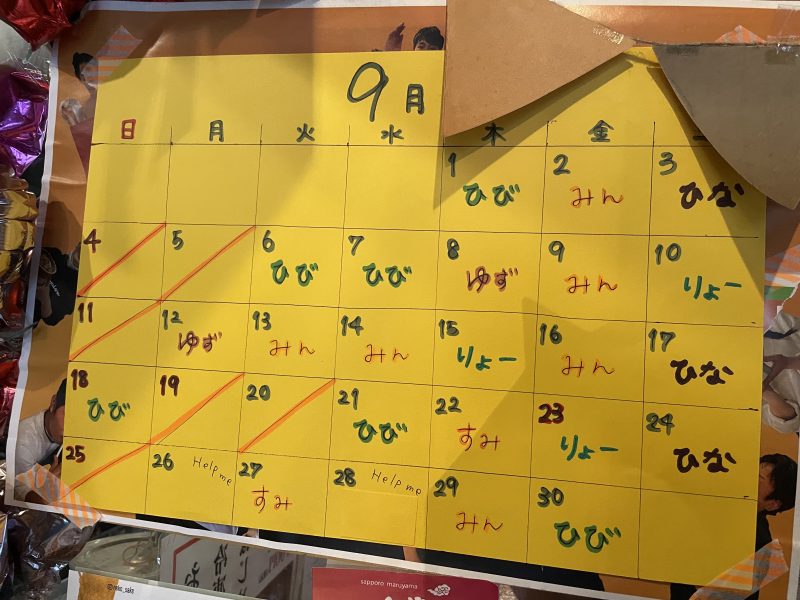 9月
日 月 火 水 木 金
1 2 3
ひび みん ひな
4 5 6 7 8 9 10
ひび ひび ゆず みん りょー
11 12 13 14 15 16 17
ゆず みん みん りょー みん ひな
18 19 20 21 22 23 24
ひび ひび すみ りょー ひな
25 26 Help me 27 28 Help me 29 30
すみ みん ひび
sapporo maruyama